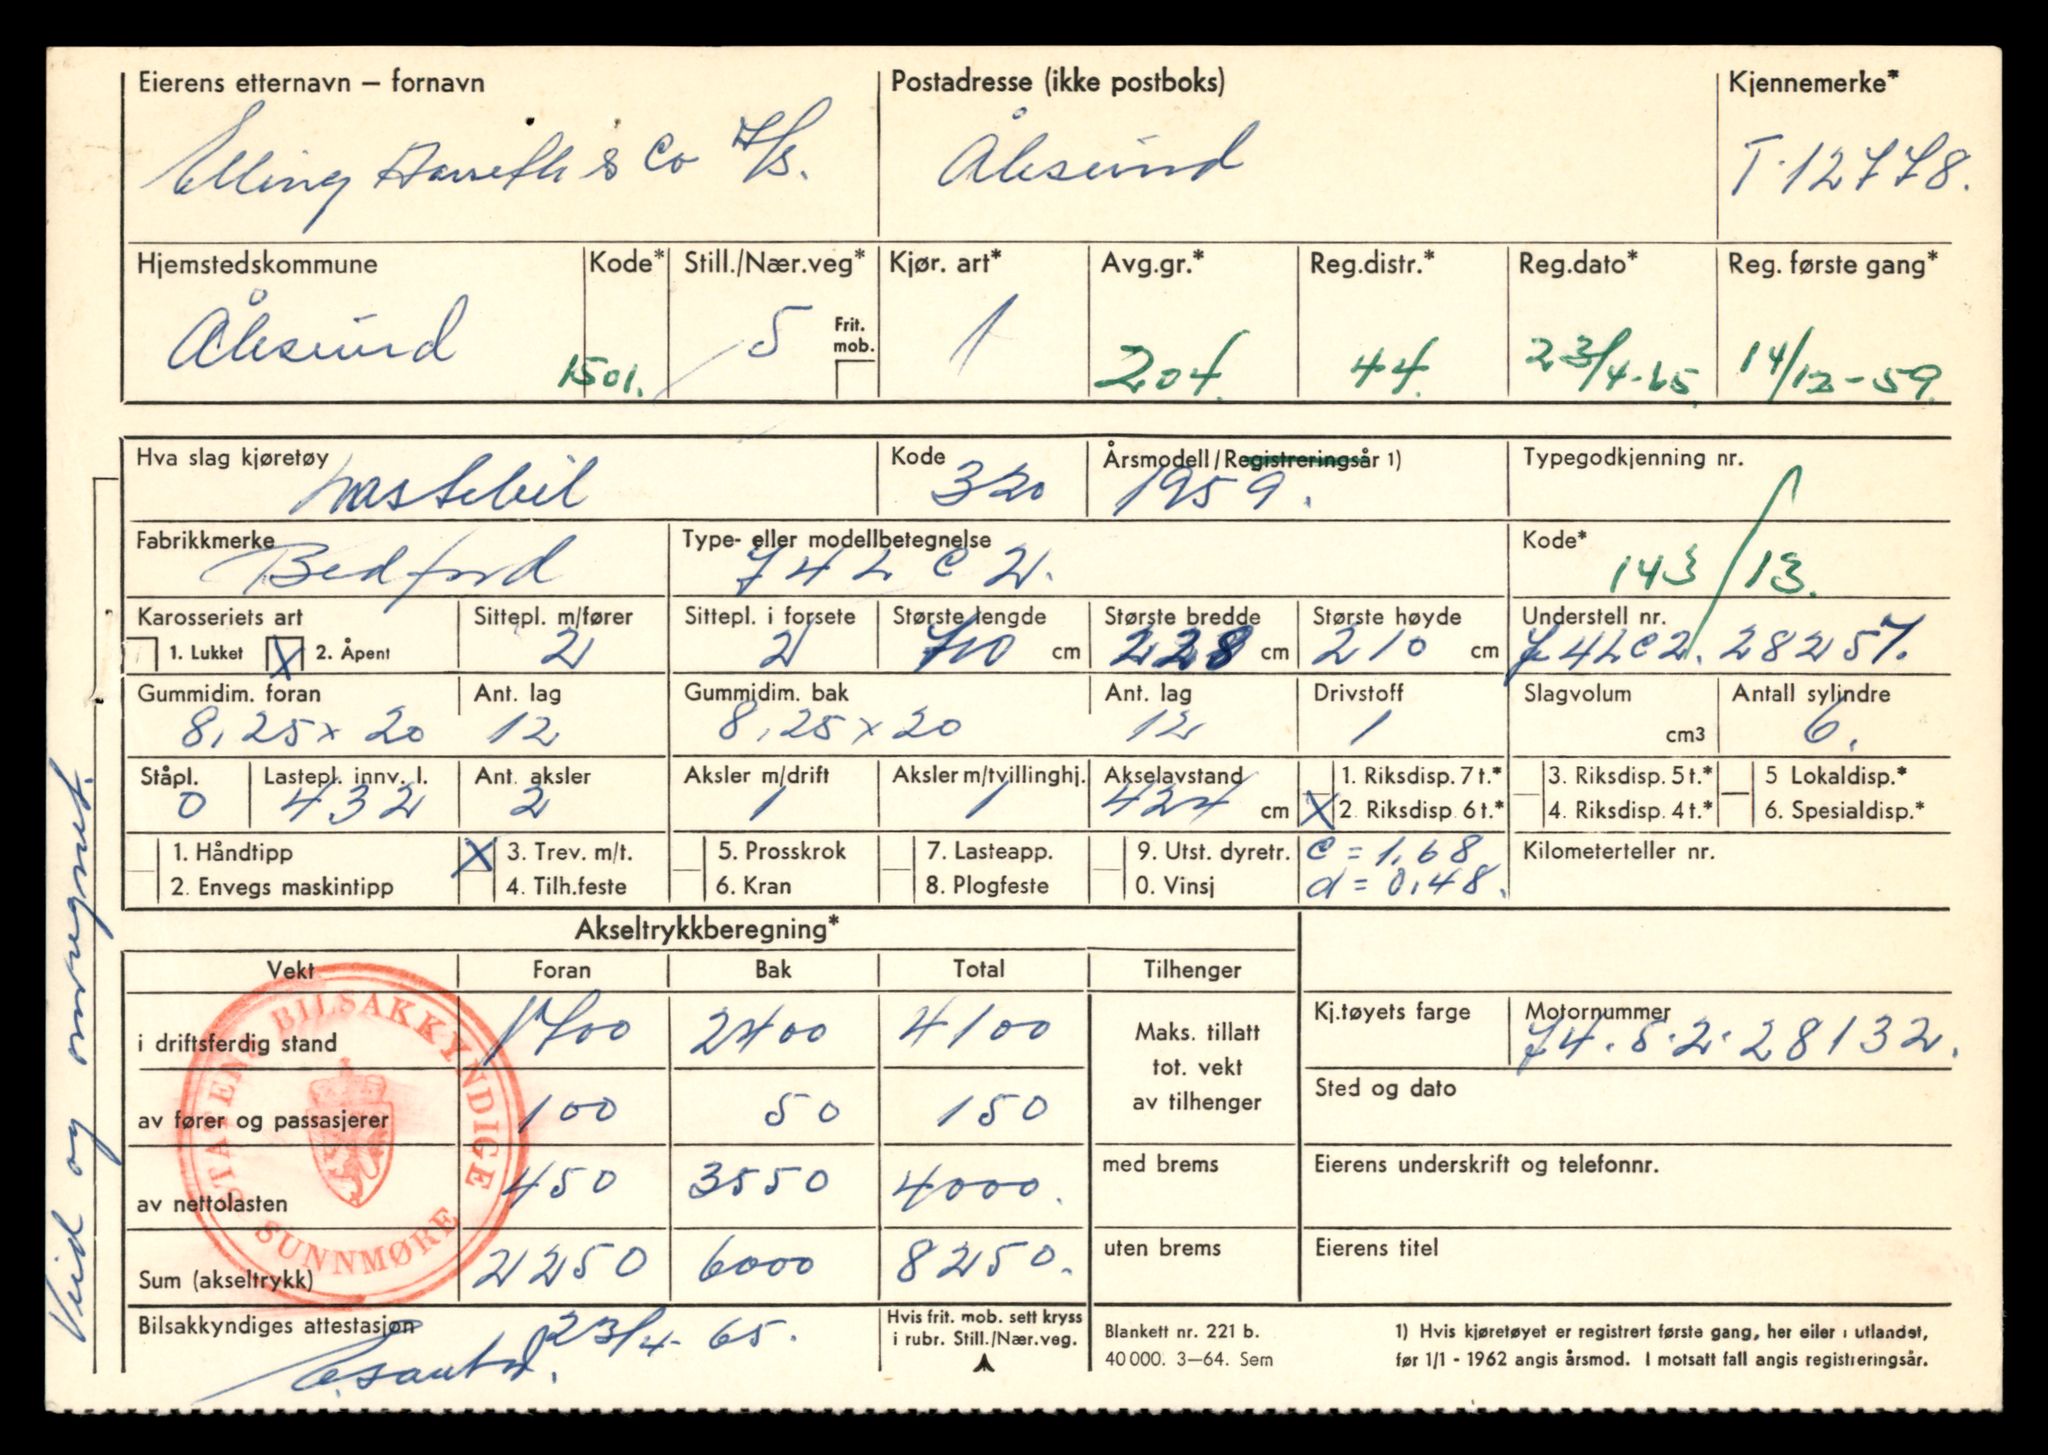 Eierens etternavn — fornavn Postadresse (ikke postboks) Kjennemerke*
Elling Aarseth & Co A/S. Ålesund T-12778.
Hjemstedskommune Kode* Still./Nær.veg* Kjør. art* Avg.gr.* Reg.distr.* Reg.dato* Reg. første gang*
Ålesund 1501. 5 Frit. mob. 1 204. 44. 23/4-65. 14/12-59.
Hva slag kjøretøy Kode Årsmodell/Registreringsår 1) Typegodkjenning nr.
Lastebil 320 1959.
Fabrikkmerke Type- eller modellbetegnelse Kode*
Bedford J4LC2. 143/13.
Karosseriets art Sittepl. m/fører Sittepl. i forsete Største lengde Største bredde Største høyde Understell nr.
1. Lukket X 2. Åpent 2 2 710 cm 228 cm 210 cm J4LC2. 28257.
Gummidim. foran Ant. lag Gummidim. bak Ant. lag Drivstoff Slagvolum Antall sylindre
8,25 x 20 12 8,25 x 20 12 1 cm3 6.
Ståpl. Lastepl. innv. l. Ant. aksler Aksler m/drift Aksler m/tvillinghj. Akselavstand 1. Riksdisp. 7 t.* 3. Riksdisp. 5 t.* 5 Lokaldisp.*
0 432 2 1 1 424 cm X 2. Riksdisp. 6 t.* 4. Riksdisp. 4 t.* 6. Spesialdisp.*
1. Håndtipp X 3. Trev. m/t. 5. Prosskrok 7. Lasteapp. 9. Utst. dyretr. c = 1,68 Kilometerteller nr.
2. Envegs maskintipp 4. Tilh.feste 6. Kran 8. Plogfeste 0. Vinsj d = 0,48.
Akseltrykkberegning*
Vekt Foran Bak Total Tilhenger
i driftsferdig stand 1700 2400 4100 Maks. tillatt tot. vekt av tilhenger Kj.tøyets farge Motornummer
J4.S.2.28132.
av fører og passasjerer 100 50 150 Sted og dato
av nettolasten 450 3550 4000. med brems Eierens underskrift og telefonnr.
Sum (akseltrykk) 2250 6000 8250. uten brems Eierens titel
Bilsakkyndiges attestasjon 23/4-65. Hvis frit. mob. sett kryss i rubr. Still./Nær.veg.
Blankett nr. 221 b.
40 000. 3—64. Sem
1) Hvis kjøretøyet er registrert første gang, her eller i utlandet,
før 1/1 - 1962 angis årsmod. I motsatt fall angis registreringsår.
STATENS BILSAKKYNDIGE SUNNMØRE
Veid og omregnet.